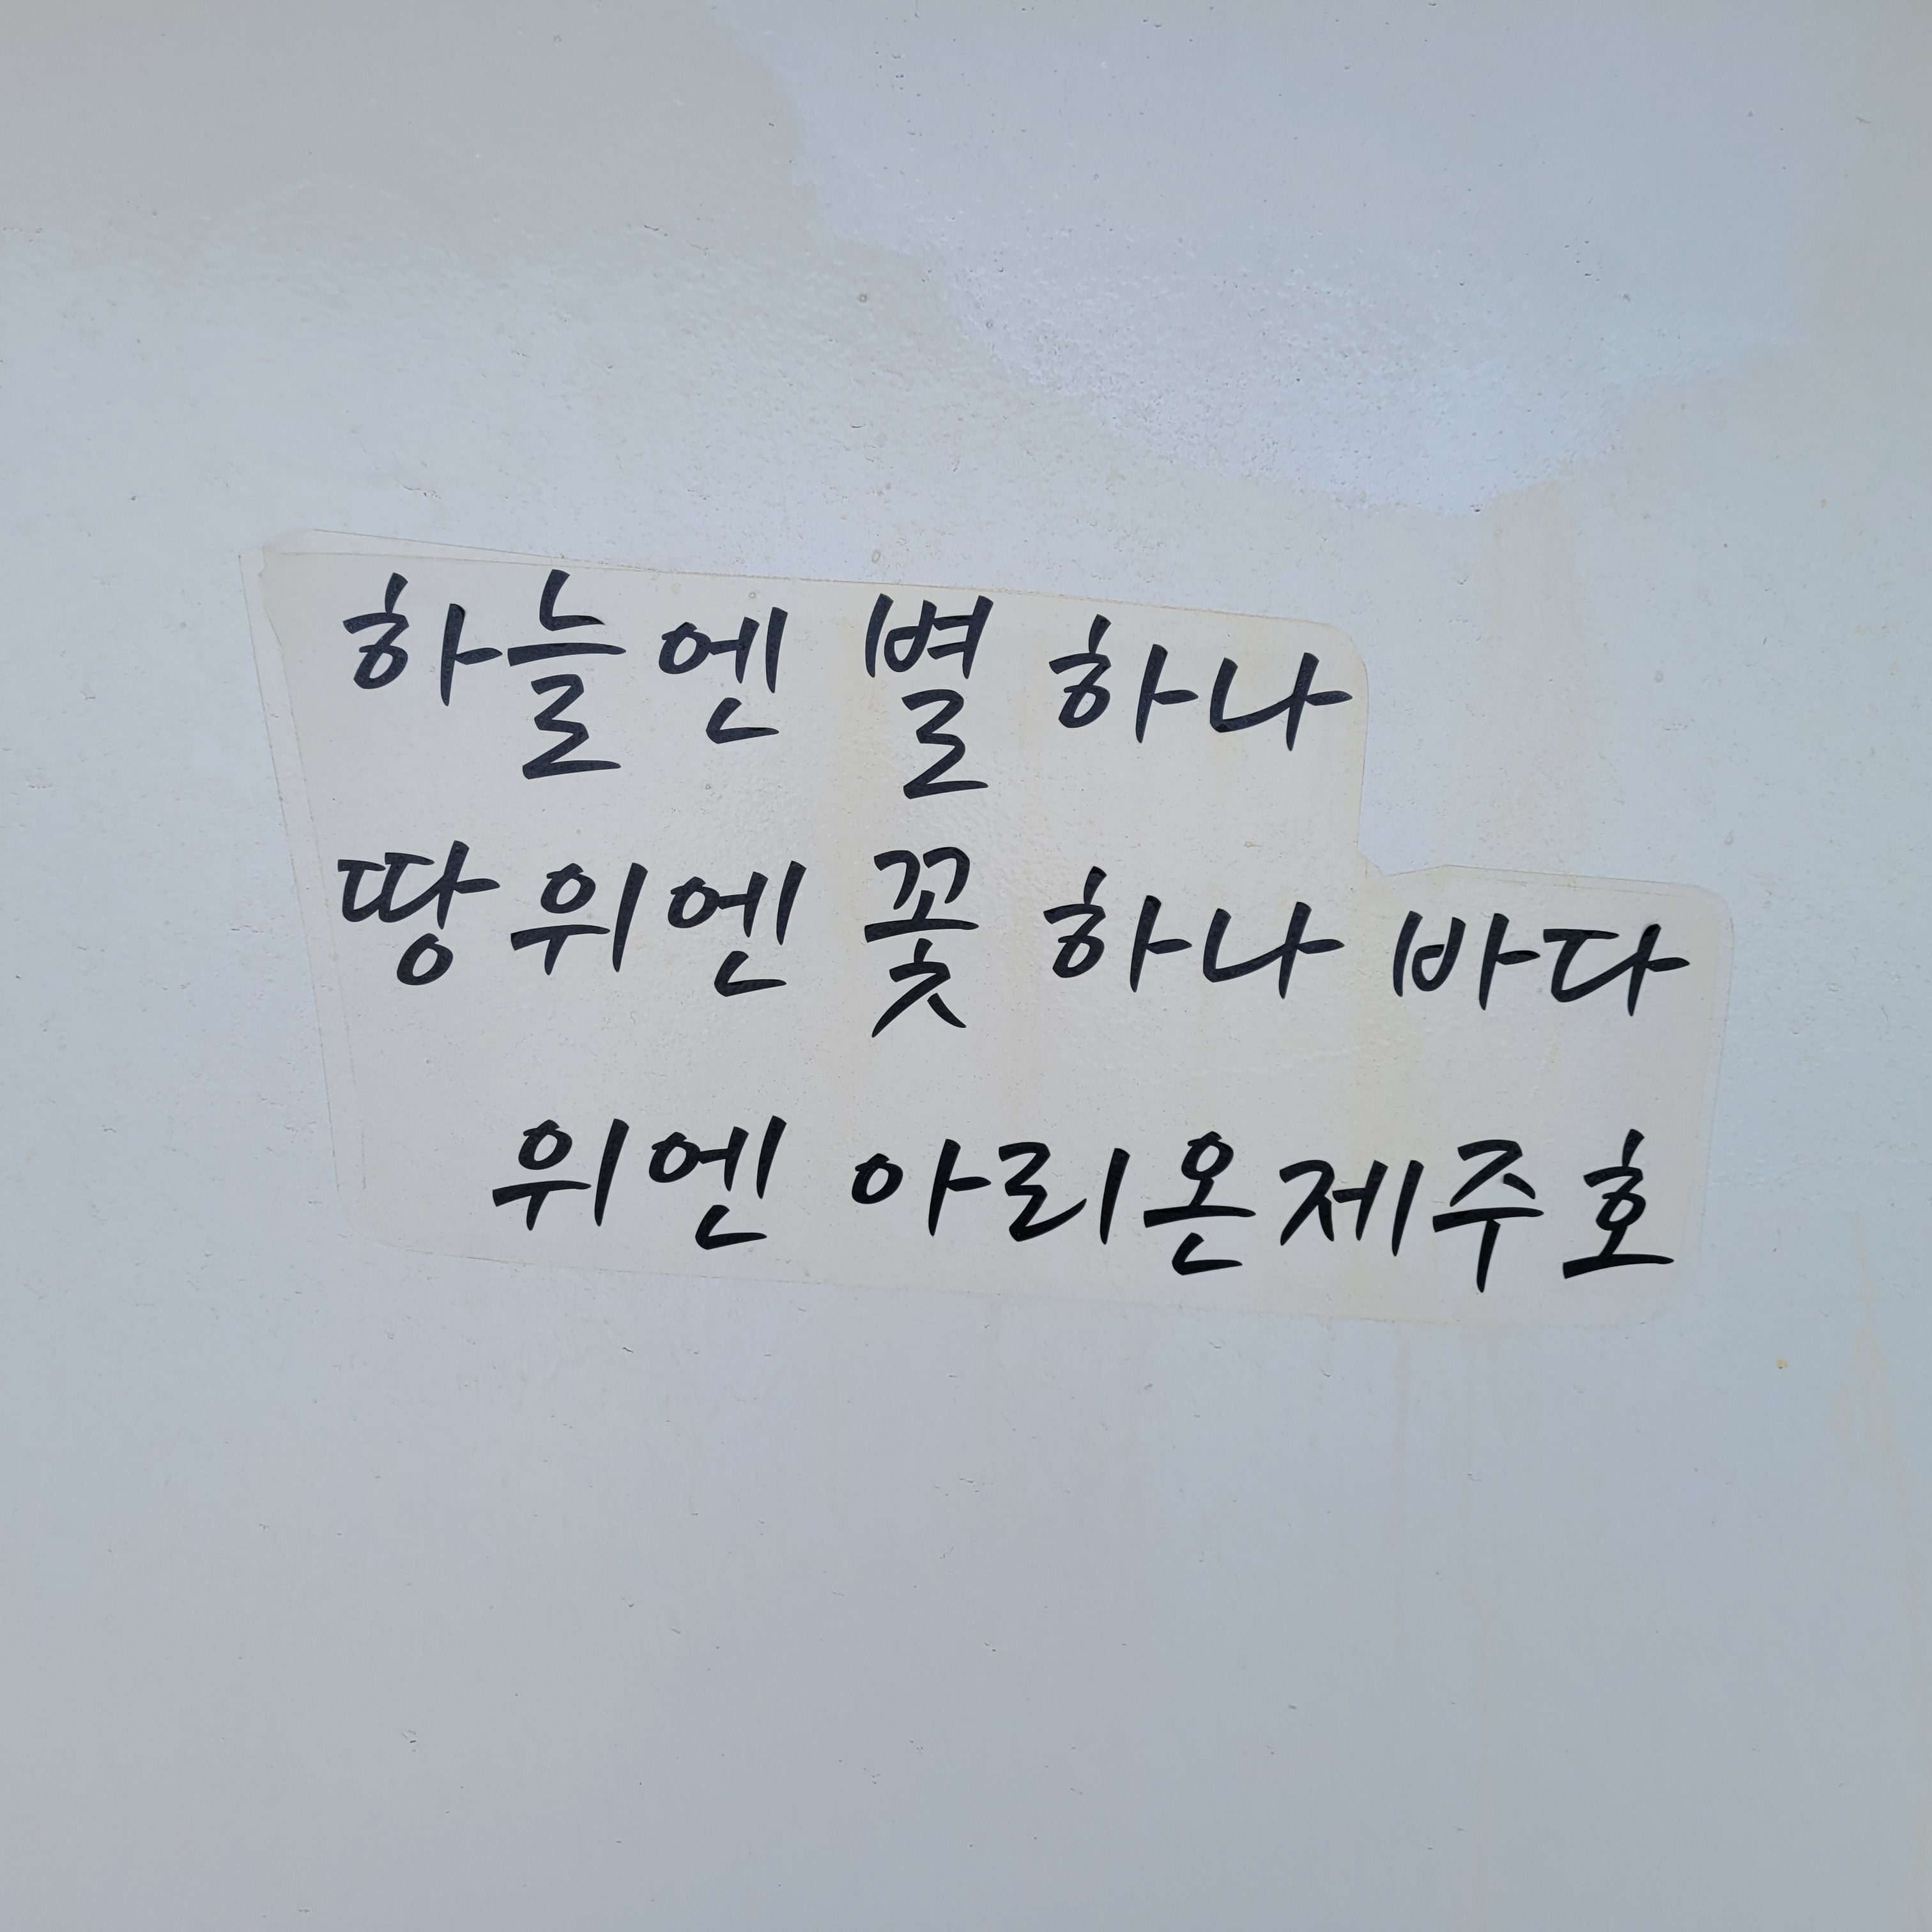 하늘엔 별 하나
땅위엔 꽃 하나 바다
위엔 아리온제주호